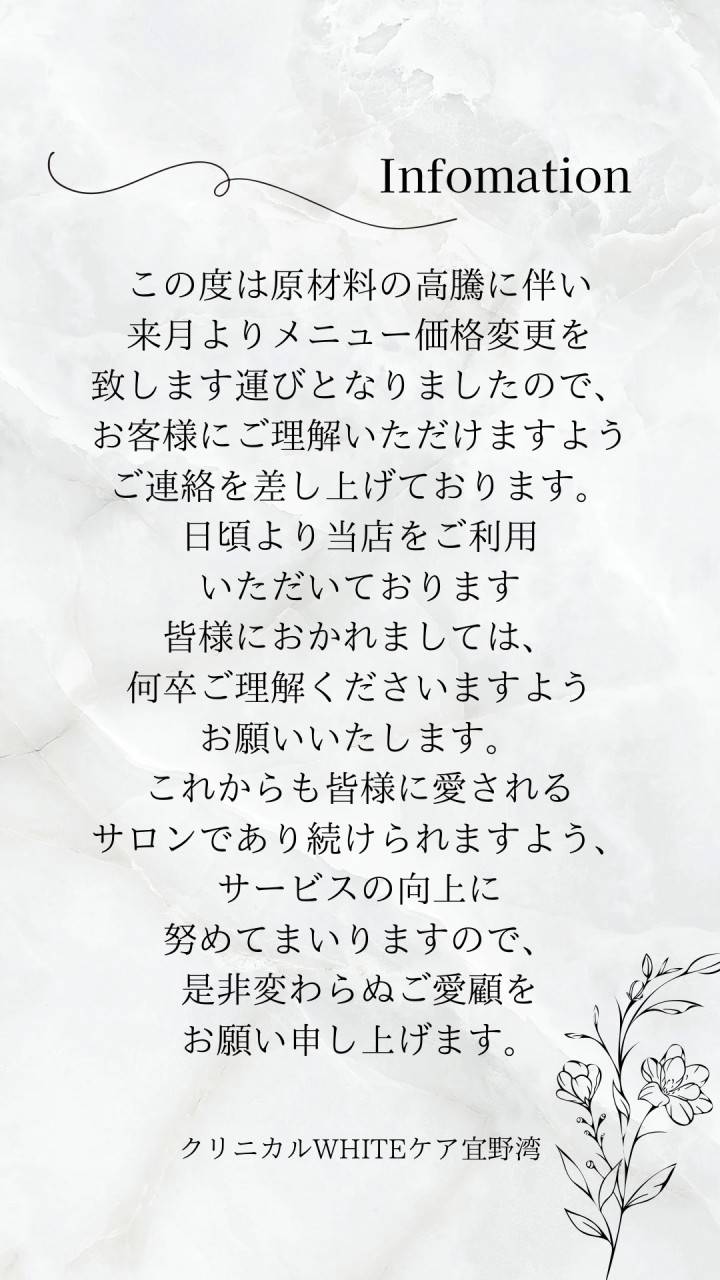 Infomation
この度は原材料の高騰に伴い
来月よりメニュー価格変更を
致します運びとなりましたので、
お客様にご理解いただけますよう
ご連絡を差し上げております。
日頃より当店をご利用
いただいております
皆様におかれましては、
何卒ご理解くださいますよう
お願いいたします。
これからも皆様に愛される
サロンであり続けられますよう、
サービスの向上に
努めてまいりますので、
是非変わらぬご愛顧を
お願い申し上げます。
クリニカルWHITEケア宜野湾